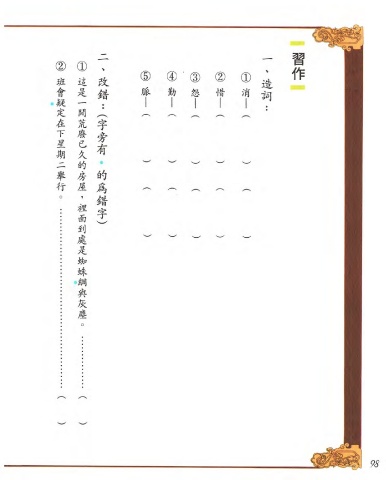 習作
一、造詞：
①消—（　　）（　　）
②惜—（　　）（　　）
③怨—（　　）（　　）
④勤—（　　）（　　）
⑤脈—（　　）（　　）
二、改錯：（字旁有•的為錯字）
①這是一間荒廢已久的房屋，裡面到處是蜘蛛綢與灰塵。…………（　　）
②班會疑定在下星期二舉行。……………………………………（　　）
98